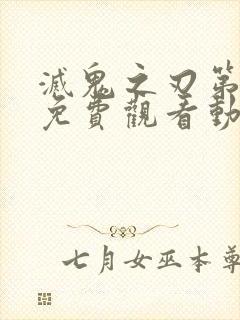 滅鬼之刃第
免費觀看動
七月女巫本尊